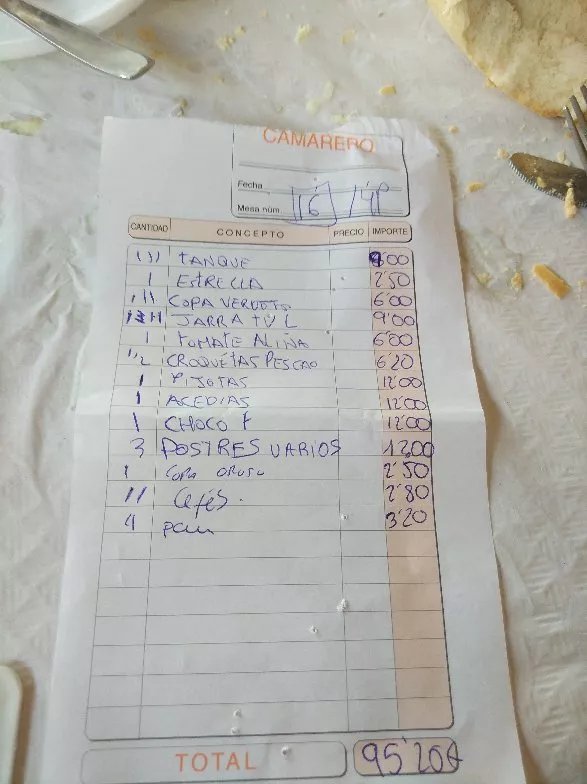 CAMARERO
Fecha
Mesa núm. 16
CANTIDAD CONCEPTO PRECIO IMPORTE
III TANQUE 9'00
1 ESTRELLA 2'50
III COPA VERDEJO 6'00
JARRA TV L 9'00
1 TOMATE ALIÑA 6'00
1/2 CROQUETAS PESCAO 6'20
1 PIJOTAS 12'00
1 ACEDIAS 12'00
1 CHOCO F 12'00
3 POSTRES VARIOS 12,00
1 COPA ORUJO 2'50
II Cafés. 2'80
4 pan 3'20
TOTAL 95'20€